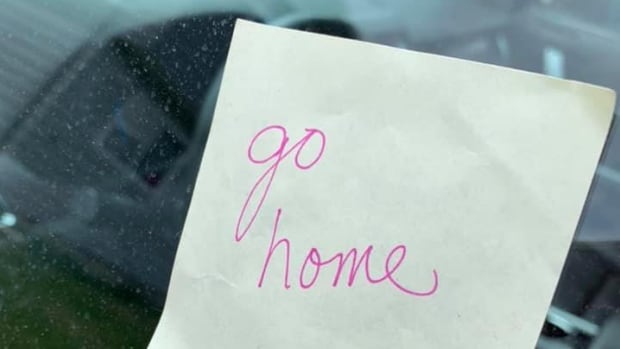 go
home